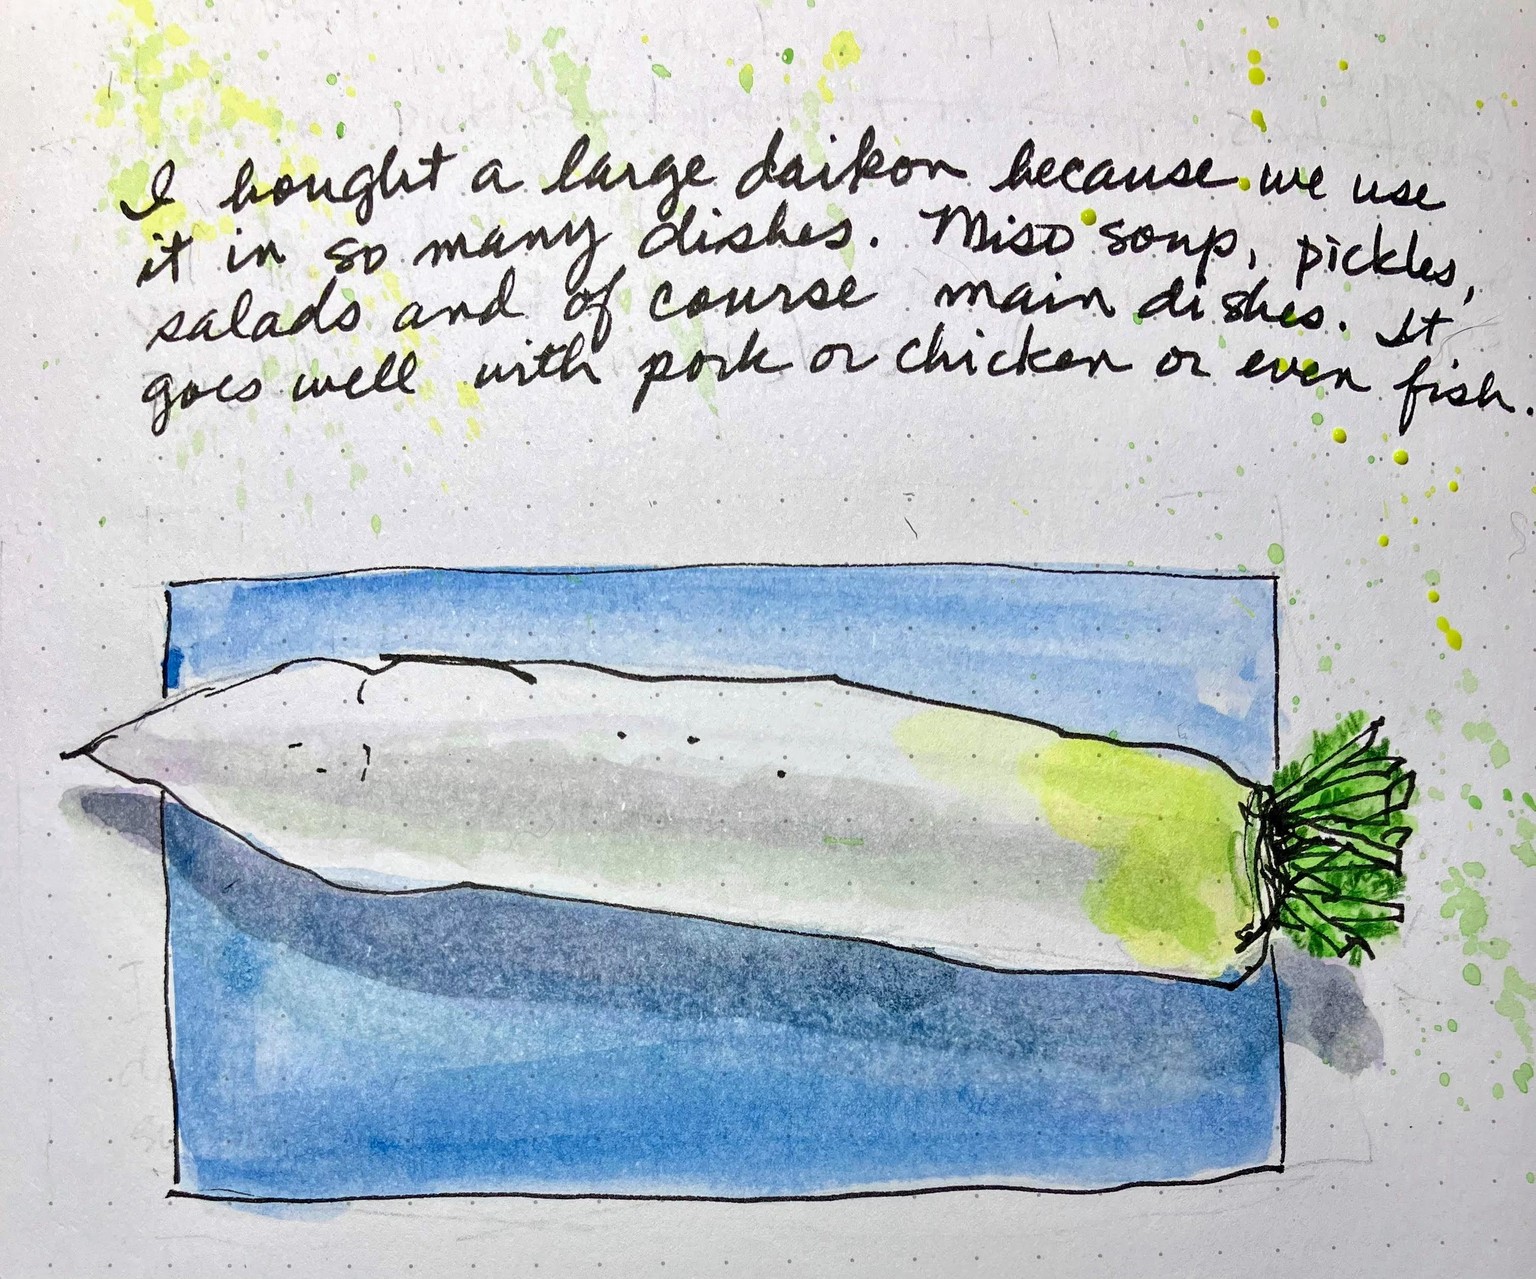 I bought a large daikon because we use
it in so many dishes. Miso soup, pickles,
salads and of course main dishes. It
goes well with pork or chicken or even fish.